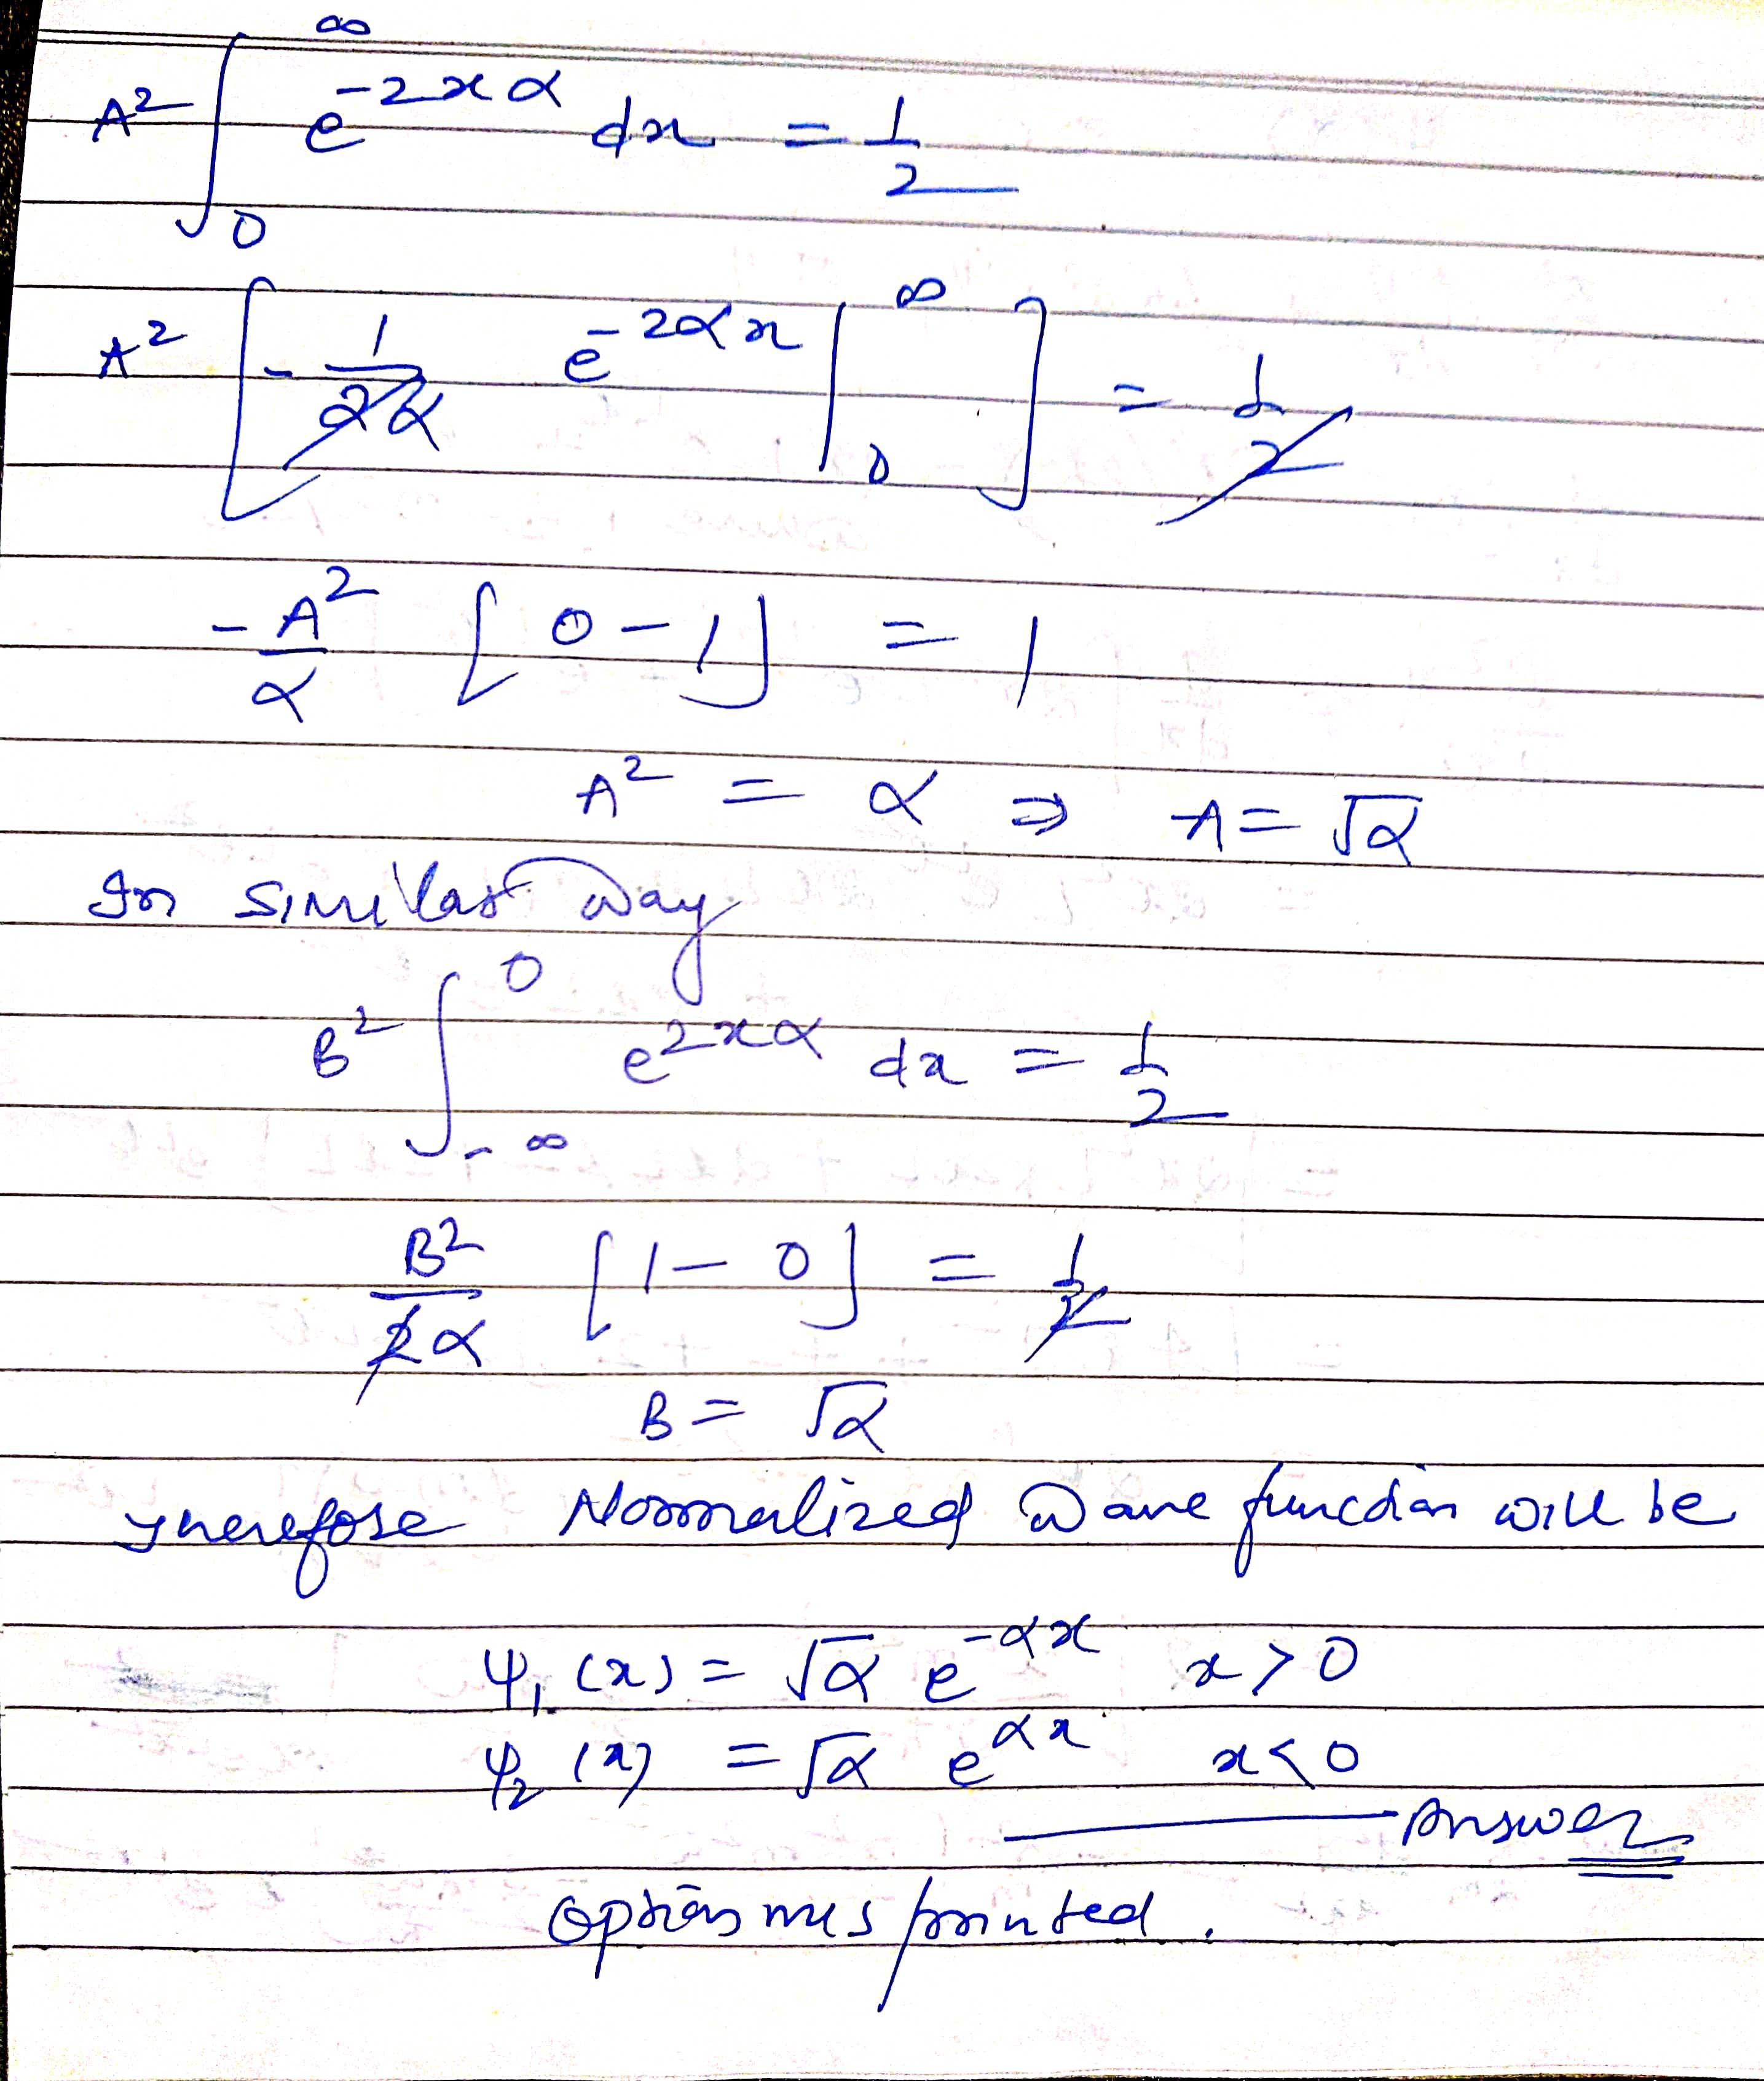 A² ∫₀^∞ e^{-2xα} dx = 1/2
A² [ -1/2α e^{-2αx} |₀^∞ ] = 1/2
-A²/α [0-1] = 1
A² = α ⇒ A = √α
In similar way
B² ∫_{-∞}^0 e^{2xα} dx = 1/2
B²/2α [1-0] = 1/2
B = √α
Therefore Normalized Wave function will be
ψ₁(x) = √α e^{-αx} x>0
ψ₂(x) = √α e^{αx} x<0
Answer
Option misprinted.